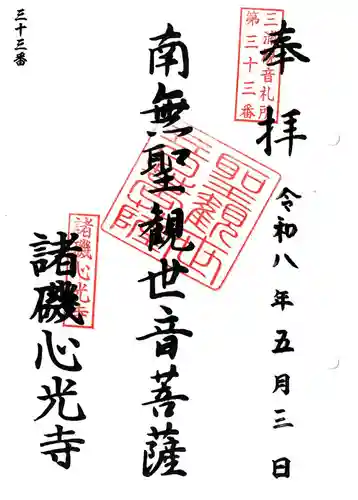 奉拝
令和八年五月三日
三浦観音札所
第三十三番
南無聖観世音菩薩
諸磯心光寺
諸磯心光寺
三十三番